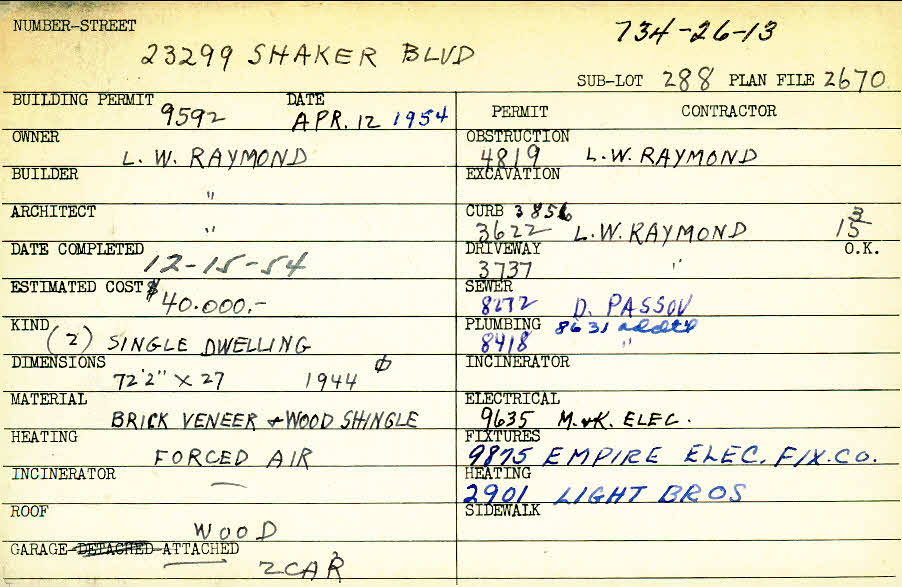 NUMBER-STREET
734-26-13
23299 SHAKER BLVD
SUB-LOT 288 PLAN FILE 2670
BUILDING PERMIT 9592 DATE APR. 12 1954
PERMIT CONTRACTOR
OWNER L. W. RAYMOND
OBSTRUCTION 4819 L. W. RAYMOND
BUILDER "
EXCAVATION
ARCHITECT "
CURB 3856
3622 L. W. RAYMOND 15 3
DATE COMPLETED 12-15-54
DRIVEWAY 3737 " O.K.
ESTIMATED COST $ 40.000.-
SEWER 8272 D. PASSOV
KIND (2) SINGLE DWELLING
PLUMBING 8631 addt'l
8418 "
DIMENSIONS 72'2" X 27 1944
INCINERATOR
MATERIAL BRICK VENEER & WOOD SHINGLE
ELECTRICAL 9635 M. & K. ELEC.
HEATING FORCED AIR
FIXTURES 9875 EMPIRE ELEC. FIX. CO.
INCINERATOR —
HEATING 2901 LIGHT BROS
ROOF WOOD
SIDEWALK
GARAGE-DETACHED-ATTACHED
2 CAR